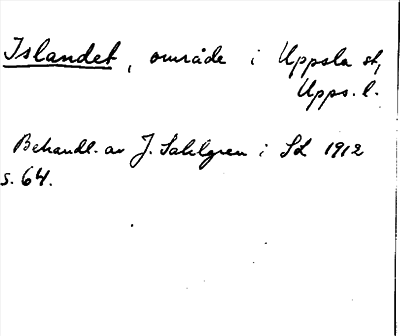 Islandet, område i Uppsla st,
Upps. l.
Behandl. av J. Sahlgren i SL 1912
s. 64.